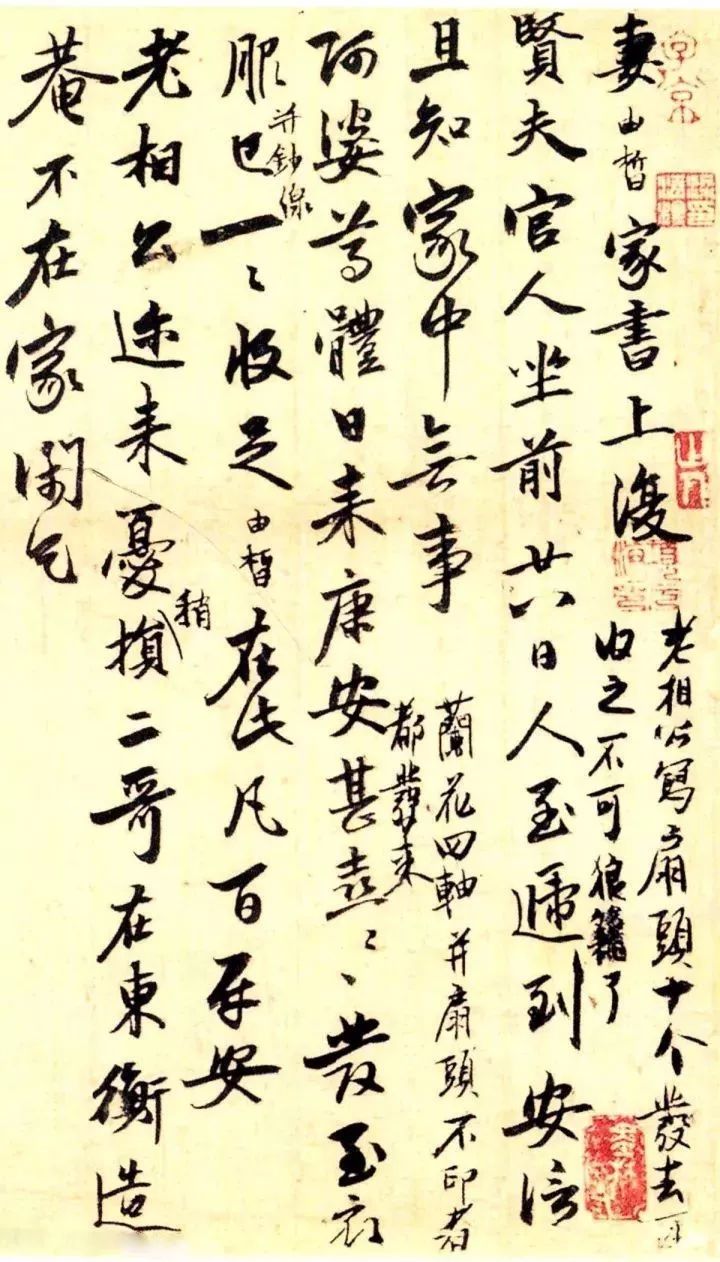 妻由皙家書上復
老相公寫扇頭十个發去可
收之不可狼籍了
賢夫官人坐前廿八日人至遞到安信
且知家中無事
蘭花四軸并扇頭不印者
都發来
阿婆尊體日来康安甚喜〻發至衣
服已并鈔線一〻收足由皙在此凡百平安
老相公迩来憂稍損二哥在東衡造
菴不在家閑乞